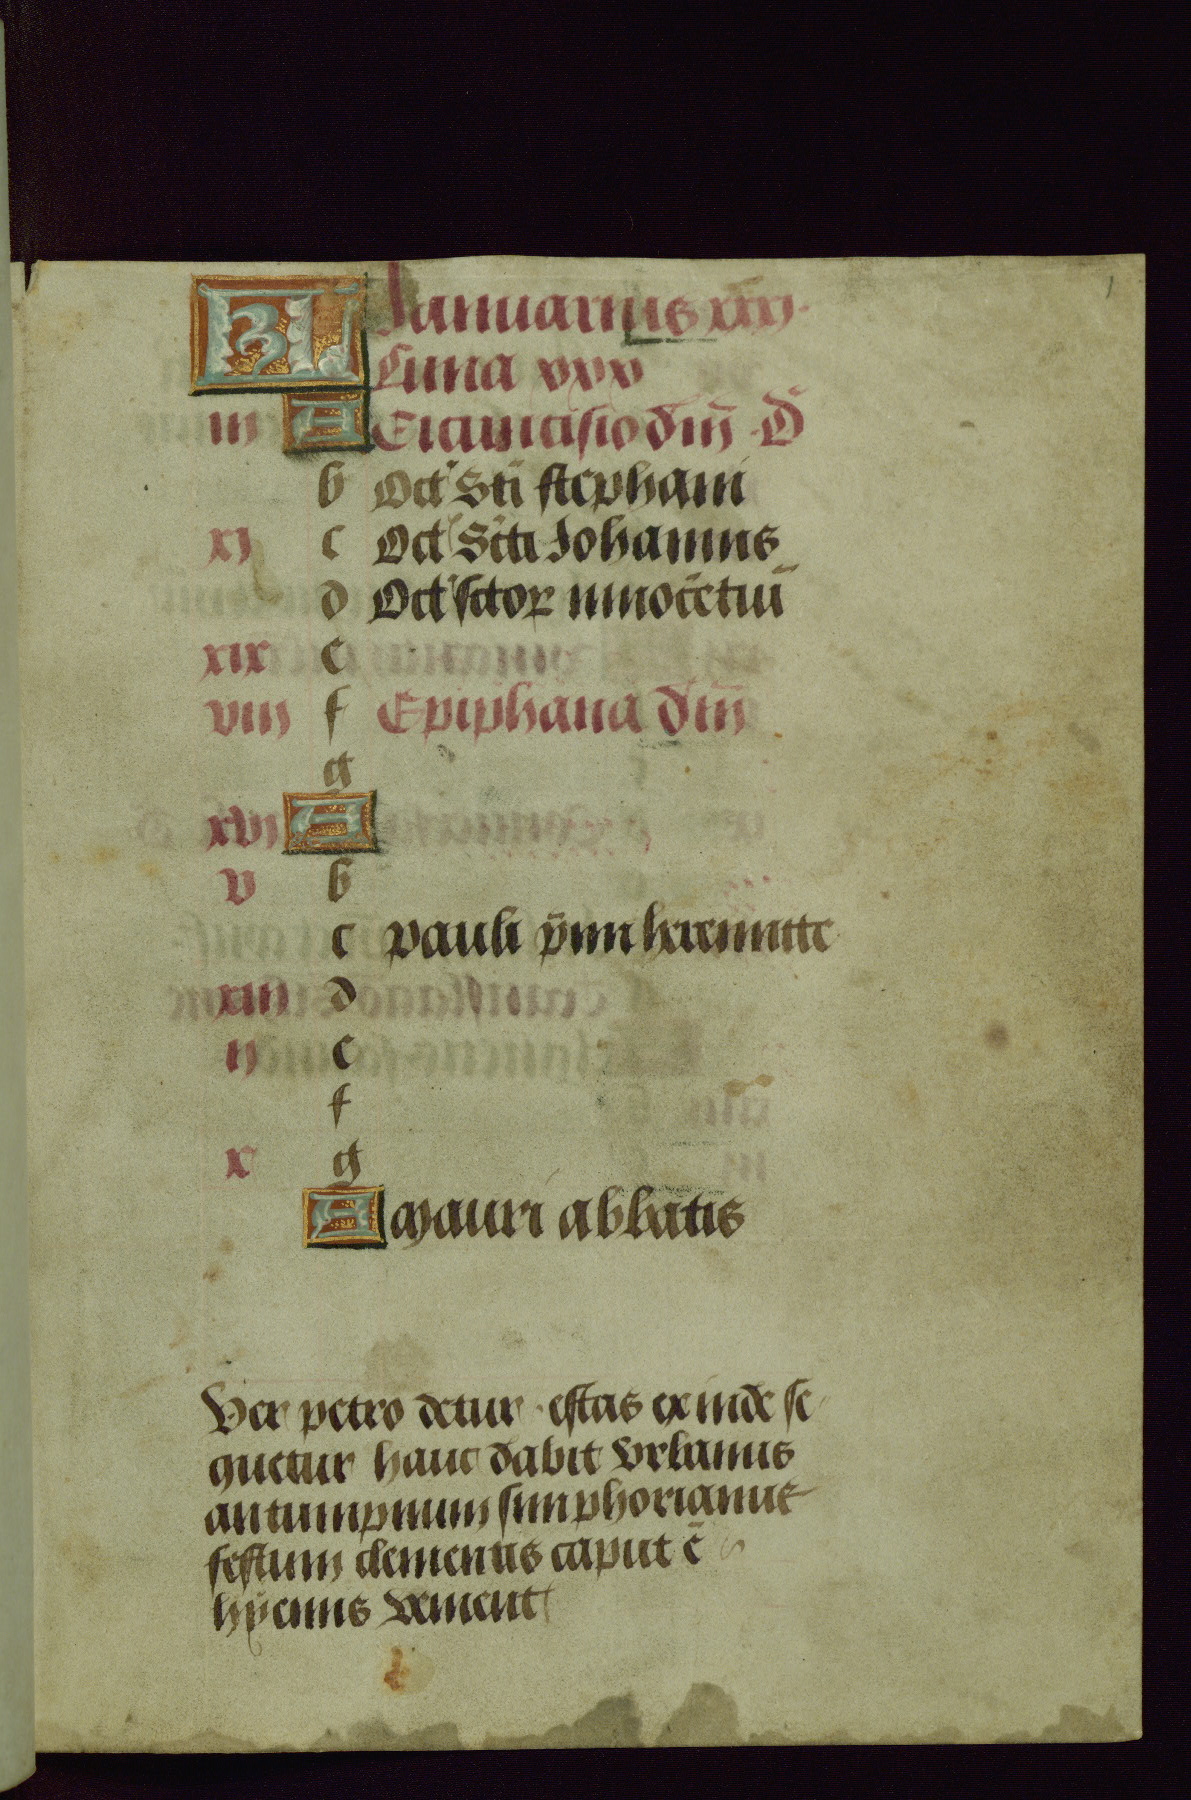 KL Januarius xxxj.
Luna xxx
iii A Circu̅cisio dn̅i D
b Oct' Sti̅ stephani
xj c Oct' Sc̅ti Johannis
d Oct' sctoꝝ innoce̅tiu̅
xix e
viii f Epiphania dn̅i
g
xvj A
v b
c pauli p̅mi heremitte
xiii d
ij e
f
x g
A Mauri abbatis
Ver petro detur · estas exinde se
quetur hanc dabit vrbanus
autumpnum simphorianus
festum clementis caput e̅
hÿemis venient
1